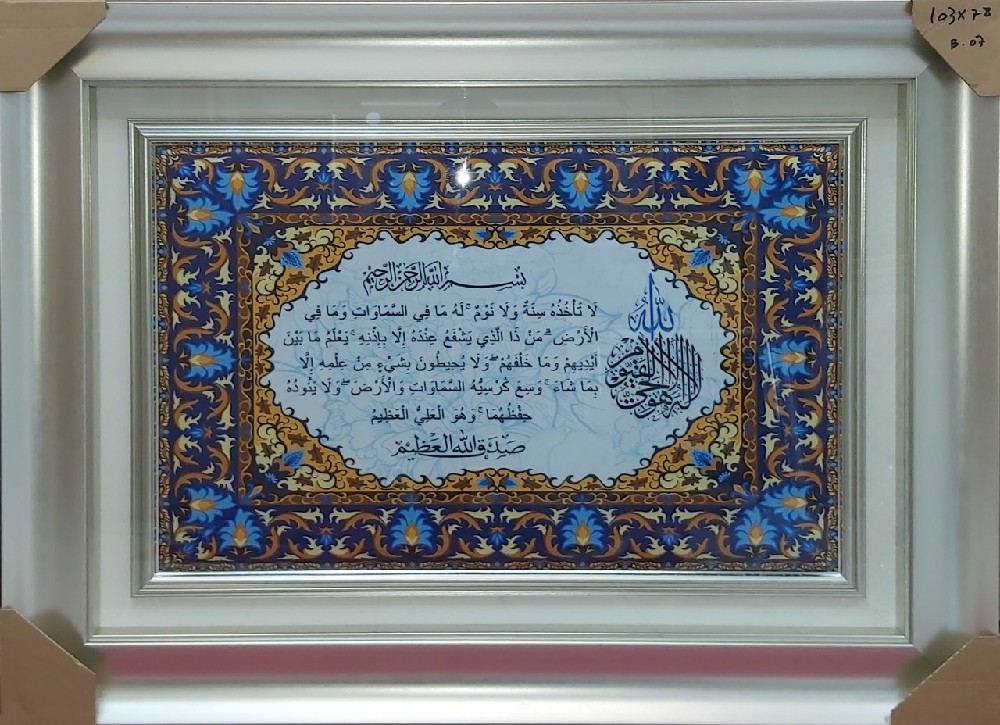 103x78
B.07
بسم الله الرحمن الرحيم
الله لا إله إلا هو الحي القيوم
لَا تَأْخُذُهُ سِنَةٌ وَلَا نَوْمٌ ۚ لَهُ مَا فِي السَّمَاوَاتِ وَمَا فِي
الْأَرْضِ ۗ مَنْ ذَا الَّذِي يَشْفَعُ عِنْدَهُ إِلَّا بِإِذْنِهِ ۚ يَعْلَمُ مَا بَيْنَ
أَيْدِيهِمْ وَمَا خَلْفَهُمْ ۖ وَلَا يُحِيطُونَ بِشَيْءٍ مِنْ عِلْمِهِ إِلَّا
بِمَا شَاءَ ۚ وَسِعَ كُرْسِيُّهُ السَّمَاوَاتِ وَالْأَرْضَ ۖ وَلَا يَئُودُهُ
حِفْظُهُمَا ۚ وَهُوَ الْعَلِيُّ الْعَظِيمُ
صدق الله العظيم